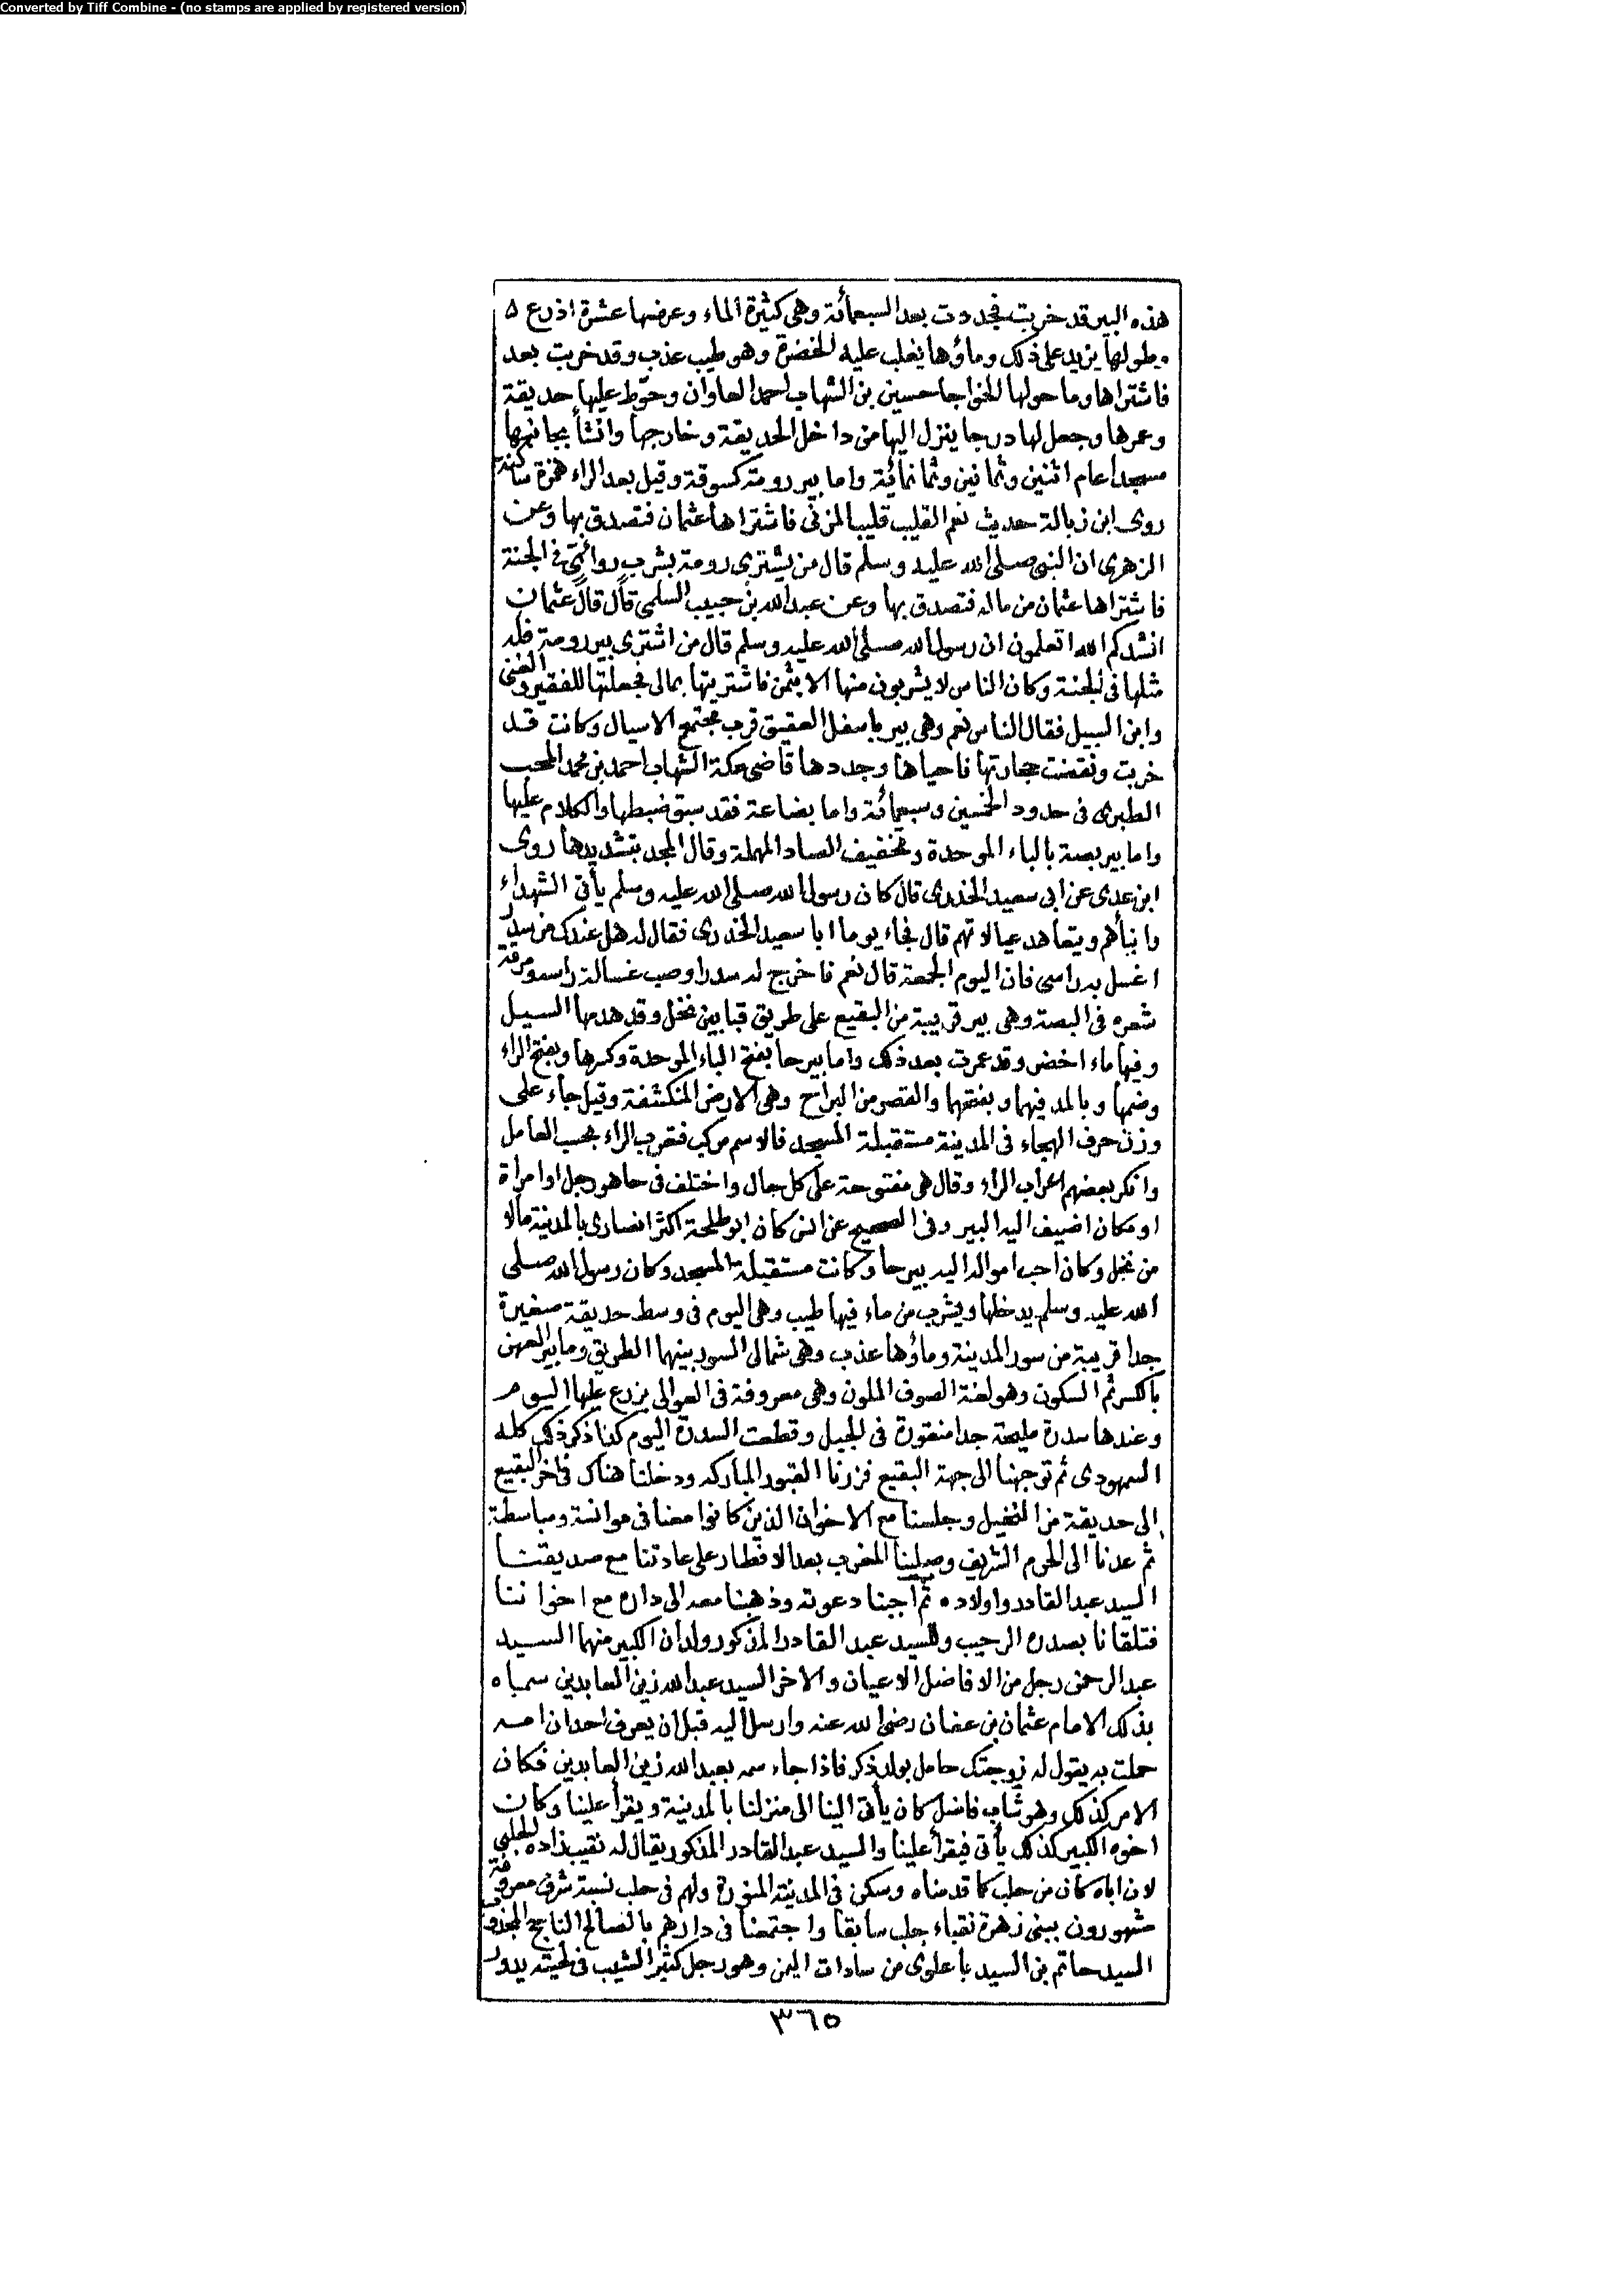 Converted by Tiff Combine - (no stamps are applied by registered version)
هذه البير قد خربت فجددت بعد السبعمائة وهى كثيرة الماء وعرضها عشرة اذرع
وطولها يزيد على ذلك وماؤها يغلب عليه الخضرة وهو طيب عذب وقد خربت بعد
فاشتراها وما حولها الخواجا حسين بن الشهاب احمد القاوان وحوّط عليها حديقة
وعمرها وجعل لها درجا ينزل اليها من داخل الحديقة وخارجها وانشأ بجانبها
مسجدا عام اثنين وثمانين وثمانمائة واما بير رومة كسوقة وقيل بعد الراء همزة ساكنة
روى ابن زبالة حديث نعم القليب قليب المزنى فاشتراها عثمان فتصدق بها وعن
الزهرى ان النبى صلى الله عليه وسلم قال من يشترى رومة بشرب رواء فى الجنة
فاشتراها عثمان من ماله فتصدق بها وعن عبدالله بن حبيب السلمى قال قال عثمان
انشدكم الله اتعلمون ان رسول الله صلى الله عليه وسلم قال من اشترى بير رومة فله
مثلها فى الجنة وكان الناس لا يشربون منها الا بثمن فاشتريتها بمالى فجعلتها للفقير والغنى
وابن السبيل فقال الناس نعم وهى بير باسفل العقيق قرب مجتمع الاسيال وكانت قد
خربت ونقضت حجارتها فاحياها وجددها قاضى مكة الشهاب احمد بن محمد المحب
الطبرى فى حدود الخمسين وسبعمائة واما بضاعة فقد سبق ضبطها والكلام عليها
واما بير بصة بالباء الموحدة وتخفيف الصاد المهملة وقال المجد بتشديدها روى
ابن عدى عن ابى سعيد الخدرى قال كان رسول الله صلى الله عليه وسلم يأتى الشهداء
وابنأهم ويتعاهد عيالاتهم قال فجاء يوما ابا سعيد الخدرى فقال له هل عندك من سدر
اغسل به راسى فان اليوم الجمعة قال نعم فاخرج له سدرا وصب غسالة راسه ومرقة
شعره فى البصة وهى بير قريبة من البقيع على طريق قبا بين نخل وقد هدمها السيل
وفيها ماء اخضر وقد عمرت بعد ذلك واما بير حا بفتح الباء الموحدة وكسرها وبفتح الراء
وضمها وبالمد فيهما وبفتحهما والقصر من البراح وهى الارض المنكشفة وقيل جاء على
وزن حرف الهجاء فى المدينة مستقبلة المسجد فالاسم مركب فتعرب الراء بحسب العامل
وانكر بعضهم اعراب الراء وقال هى مفتوحة على كل حال واختلف فى حا هو رجل او امرأة
او مكان اضيف اليه البير وفى الصحيح عن انس كان ابو طلحة اكثر انصارى بالمدينة مالا
من نخل وكان احب امواله اليه بير حا وكانت مستقبلة المسجد وكان رسول الله صلى
الله عليه وسلم يدخلها ويشرب من ماء فيها طيب وهى اليوم فى وسط حديقة صغيرة
جدا قريبة من سور المدينة وماؤها عذب وهى شمالى السور بينهما الطريق وما بير العهن
بالكسر ثم السكون وهو لغة الصوف الملون وهى معروفة فى العوالى يزرع عليها اليوم
وعندها سدرة مليحة جدا منقورة فى الجبل وقطعت السدرة اليوم كذا ذكر ذلك كله
السمهودى ثم توجهنا الى جهة البقيع فزرنا القبور المباركه ودخلنا هناك فى اخر البقيع
الى حديقة من النخيل وجلسنا مع الاخوان الذين كانوا معنا فى موانسة ومباسطة
ثم عدنا الى الحرم الشريف وصلينا المغرب بعد الافطار على عادتنا مع صديقنا
السيد عبد القادر واولاده ثم اجبنا دعوته وذهبنا معه الى داره مع اخواننا
فتلقانا بصدره الرحيب وللسيد عبد القادر المذكور ولدان الكبير منهما السيد
عبد الرحمن رجل من الافاضل الاعيان والاخر السيد عبدالله زين العابدين سماه
بذلك الامام عثمان بن عفان رضى الله عنه وارسل اليه قبل ان يعرف احد ان امه
حملت به يقول له زوجتك حامل بولد ذكر فاذا جاء سمه بعبد الله زين العابدين فكان
الامر كذلك وهو شاب فاضل كان يأتى الينا الى منزلنا بالمدينة ويقرأ علينا وكان
اخوه الكبير كذلك يأتى فيقرأ علينا والسيد عبد القادر المذكور يقال له نقيب زاده الحلبى
لان اباه كان من حلب كما قدمناه وسكن فى المدينة المنورة ولهم فى حلب نسبة شرف معروفة
مشهورون ببنى زهرة نقباء حلب سابقا واجتمعنا فى دارهم بالصالح الناجح المجذوب
السيد حاتم بن السيد باعلوى من سادات اليمن وهو رجل كثير الشيب فى لحيته يدور
٣٦٥